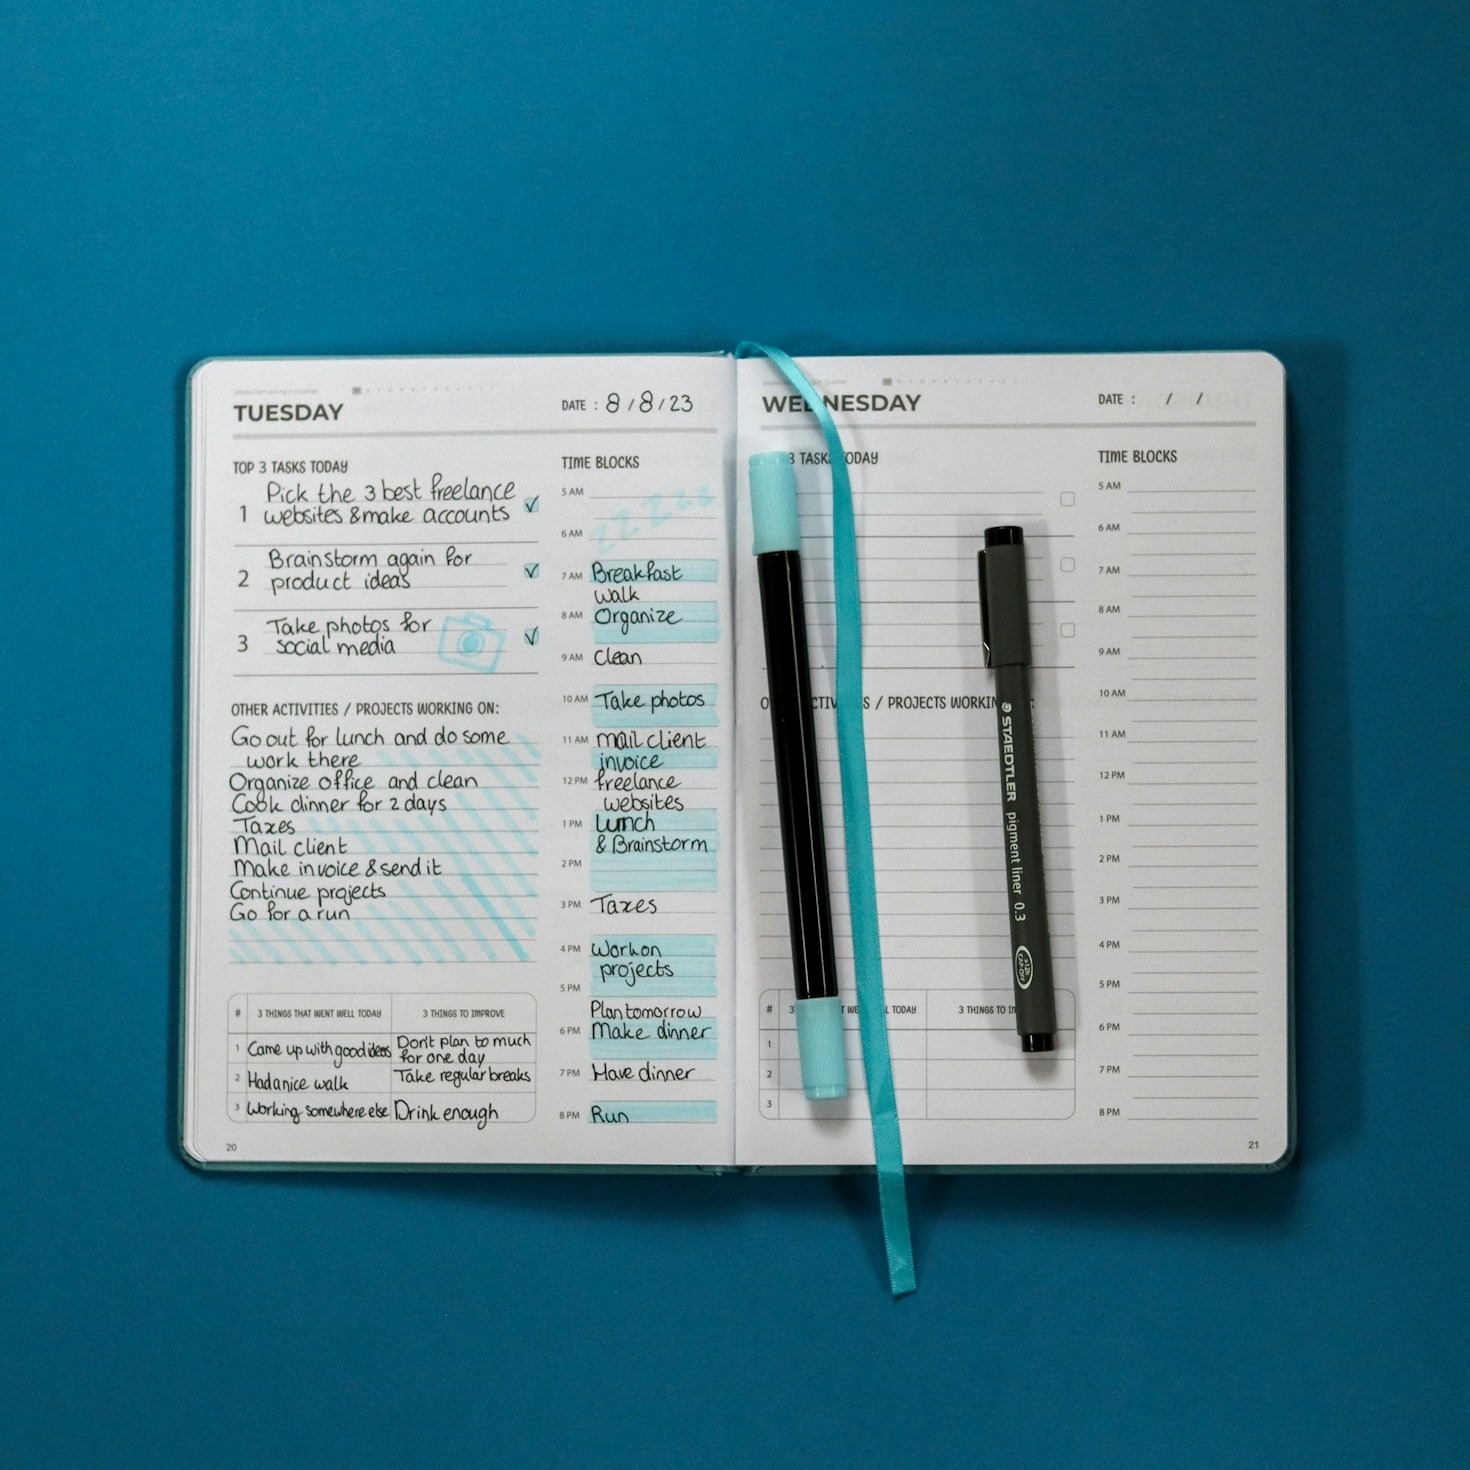 TUESDAY
DATE : 8/8/23
TOP 3 TASKS TODAY
1 Pick the 3 best freelance
websites & make accounts
2 Brainstorm again for
product ideas
3 Take photos for
social media
OTHER ACTIVITIES / PROJECTS WORKING ON:
Go out for lunch and do some
work there
Organize office and clean
Cook dinner for 2 days
Taxes
Mail client
Make invoice & send it
Continue projects
Go for a run
# 3 THINGS THAT WENT WELL TODAY 3 THINGS TO IMPROVE
1 Came up with good ideas Don't plan to much
for one day
2 Had a nice walk Take regular breaks
3 Working somewhere else Drink enough
20
TIME BLOCKS
5 AM
zzzzz
6 AM
7 AM Breakfast
walk
8 AM Organize
9 AM Clean
10 AM Take photos
11 AM mail client
invoice
12 PM freelance
websites
1 PM Lunch
& Brainstorm
2 PM
3 PM Taxes
4 PM Work on
projects
5 PM
Plan tomorrow
6 PM Make dinner
7 PM Have dinner
8 PM Run
WEDNESDAY
DATE : / /
3 TASKS TODAY
/ PROJECTS WORKIN
# 3 L TODAY 3 THINGS TO IM
1
2
3
TIME BLOCKS
5 AM
6 AM
7 AM
8 AM
9 AM
10 AM
11 AM
12 PM
1 PM
2 PM
3 PM
4 PM
5 PM
6 PM
7 PM
8 PM
21
STAEDTLER pigment liner 0.3